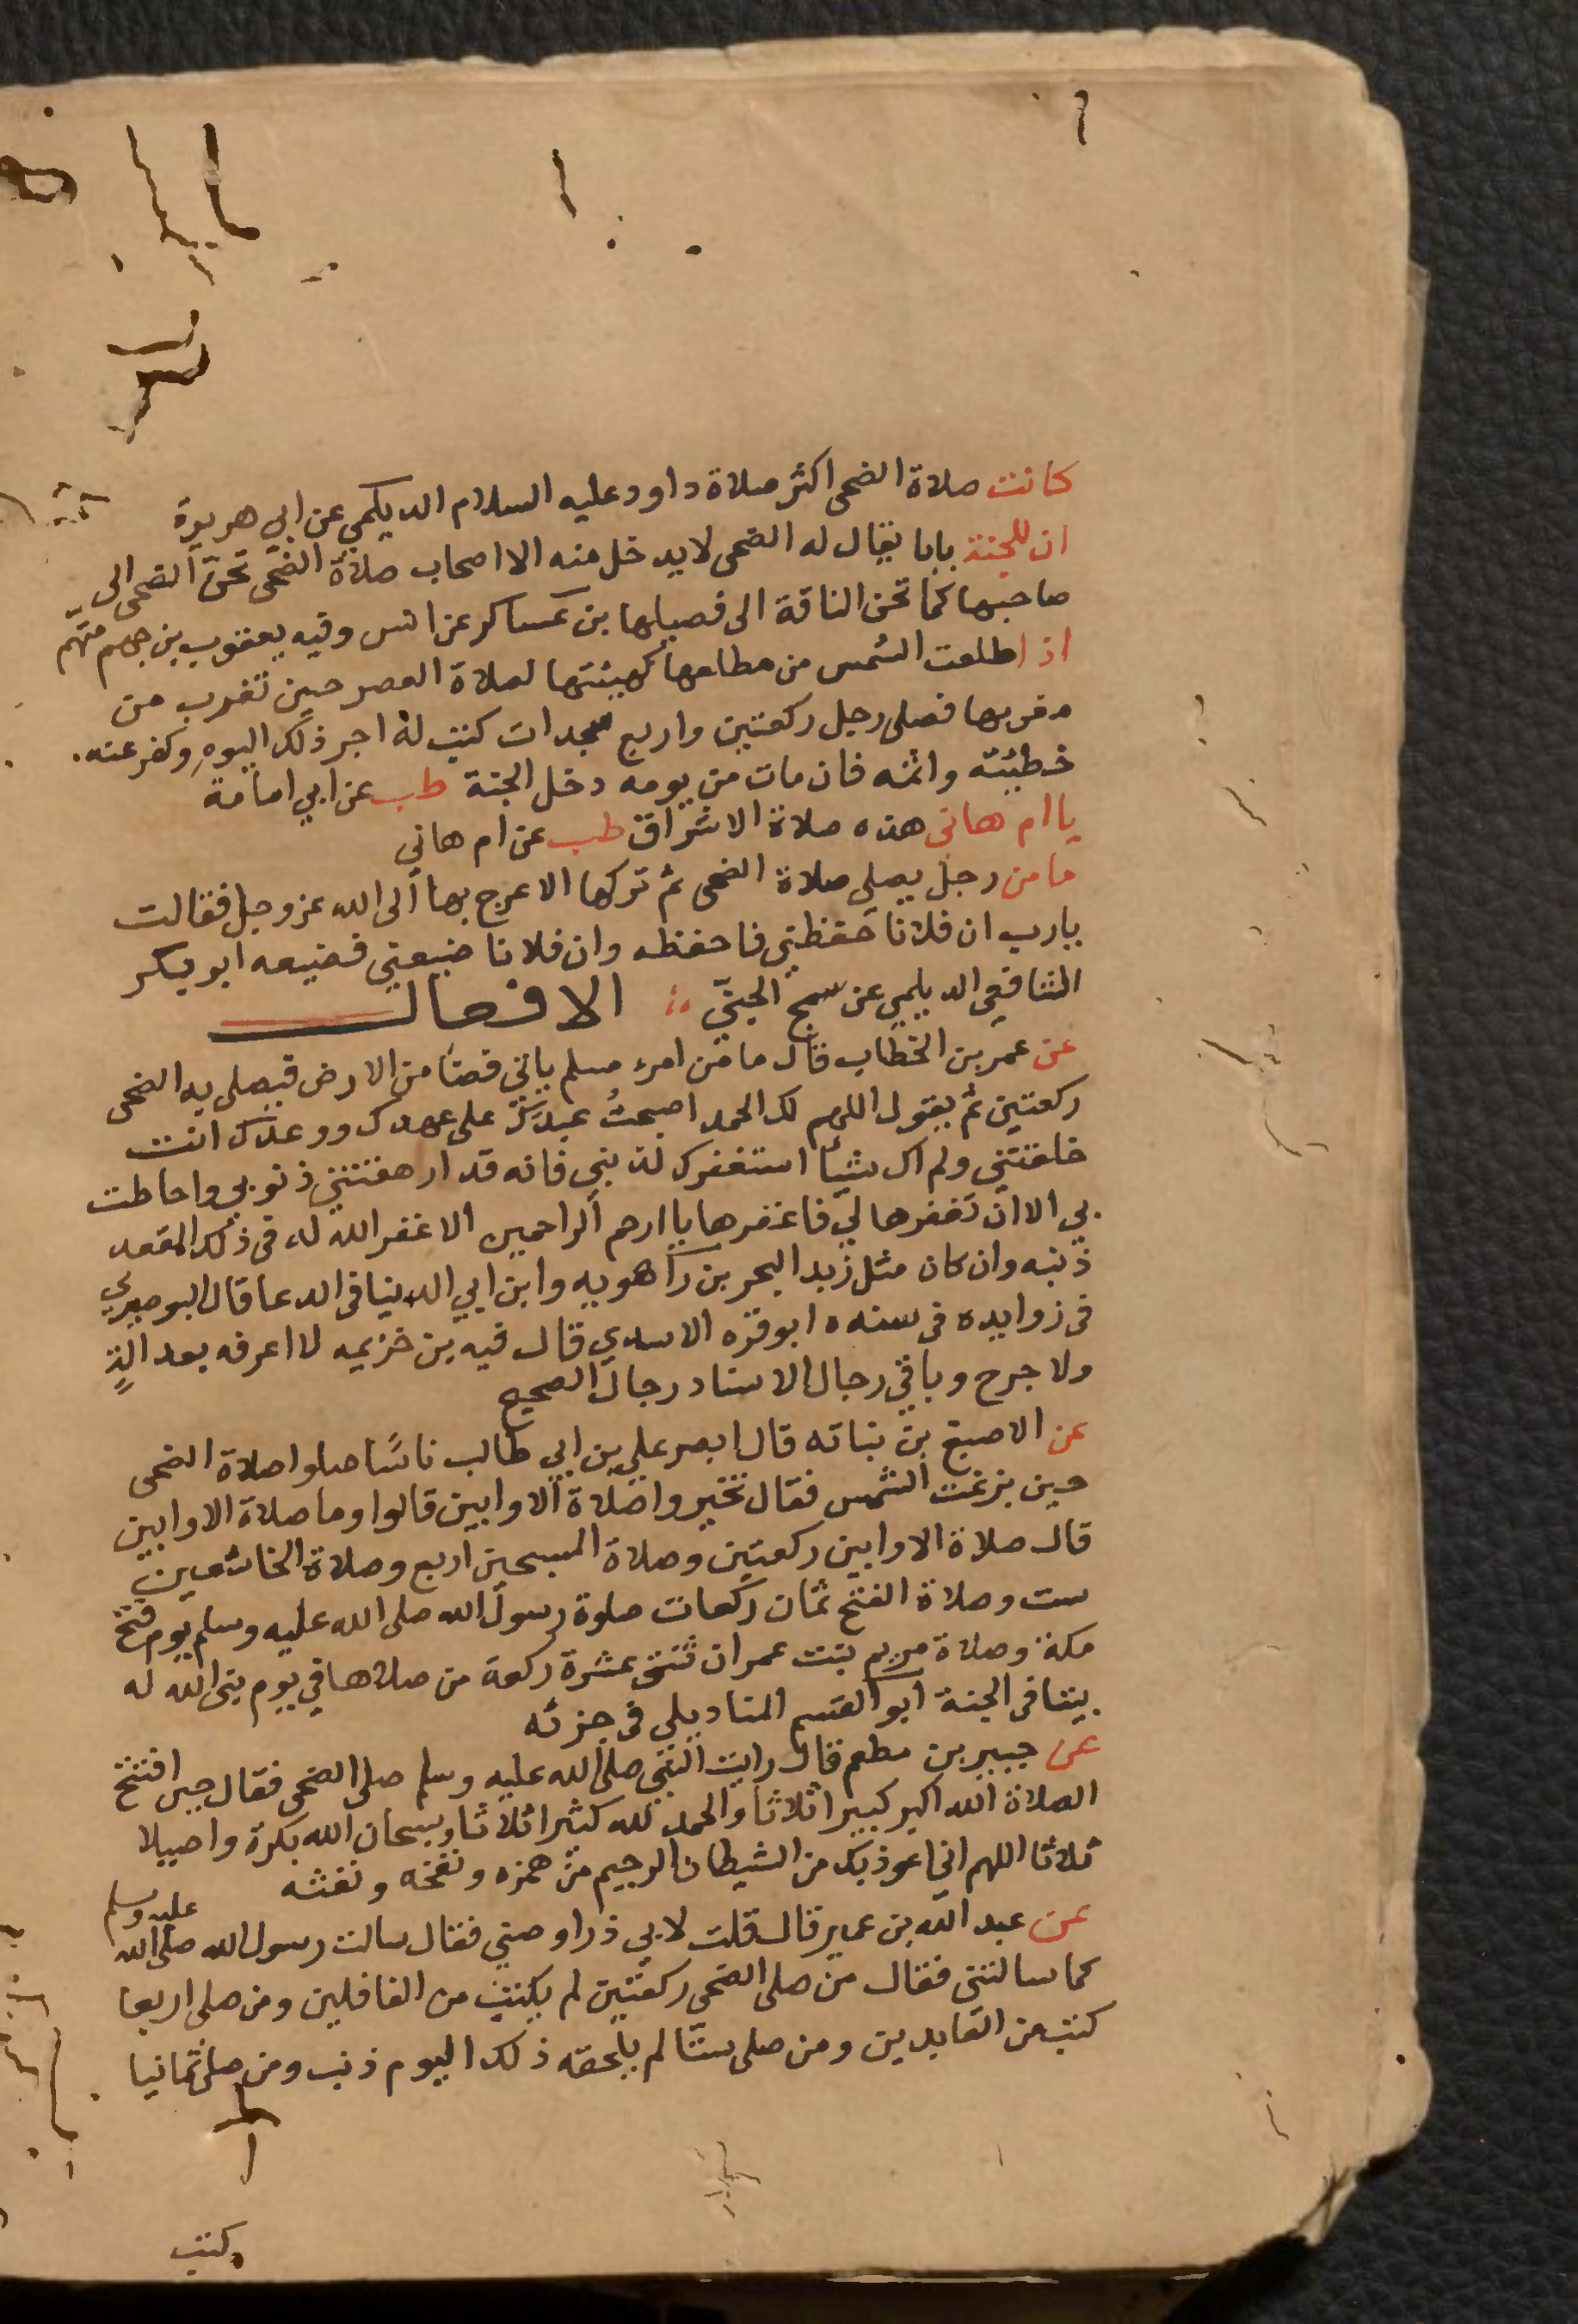 كانت صلاة الضحى اكثر صلاة داود عليه السلام الديلمي عن ابي هريرة
ان للجنة بابا يقال له الضحى لا يدخل منه الا اصحاب صلاة الضحى تحن الضحى الى
صاحبها كما تحن الناقة الى فصيلها بن عساكر عن انس وفيه يعقوب بن جهم متهم
اذا طلعت الشمس من مطلعها كهيئتها لصلاة العصر حين تغرب من
مغربها فصلى رجل ركعتين واربع سجدات كتب له اجر ذلك اليوم وكفر عنه
خطيئته واثمه فان مات من يومه دخل الجنة طب عن ابي امامة
يا ام هانى هذه صلاة الاشراق طب عن ام هاني
ما من رجل يصلي صلاة الضحى ثم تركها الا عرج بها الى الله عز وجل فقالت
يارب ان فلانا حفظني فاحفظه وان فلانا ضيعني فضيعه ابو بكر
الشافعي الديلمي عن سمح الجني الافعال
عن عمر بن الخطاب قال ما من امرء مسلم ياتي فضا من الارض فيصلي به الضحى
ركعتين ثم يقول اللهم لك الحمد اصبحت عبدك على عهدك ووعدك انت
خلقتني ولم اك شيأ استغفرك لذنبي فانه قد ارهقتني ذنوبي واحاطت
بي الا ان تغفرها لي فاغفرها يا ارحم الراحمين الا غفر الله له في ذلك المقعد
ذنبه وان كان مثل زبد البحر بن راهويه وابن ابي الدنيا في الدعا قال البوصيري
في زوايده في سنده ابو قره الاسدي قال فيه بن خزيمه لا اعرفه بعدالة
ولا جرح وباقي رجال الاسناد رجال الصحيح
عن الاصبغ بن نباته قال ابصر علي بن ابي طالب ناسًا صلوا صلاة الضحى
حين بزغت الشمس فقال نحروا صلاة الاوابين قالوا وما صلاة الاوابين
قال صلاة الاوابين ركعتين وصلاة المسبحين اربع وصلاة الخاشعين
ست وصلاة الفتح ثمان ركعات صلوة رسول الله صلى الله عليه وسلم يوم فتح
مكة وصلاة مريم بنت عمران ثنتى عشرة ركعة من صلاها في يوم بنى الله له
بيتا في الجنة ابو القسم المناديلي في جزئه
عن جبير بن مطعم قال رايت النبي صلى الله عليه وسلم صلى الضحى فقال حين افتتح
الصلاة الله اكبر كبيرا ثلاثا والحمد لله كثيرا ثلاثا وسبحان الله بكرة واصيلا
ثلاثا اللهم اني اعوذ بك من الشيطان الرجيم من همزه ونفخه ونفثه
عن عبد الله بن عمير قال قلت لابي ذر اوصني فقال سالت رسول الله صلى الله عليه وسلم
كما سالتني فقال من صلى الضحى ركعتين لم يكتب من الغافلين ومن صلى اربعا
كتب من العابدين ومن صلى ستا لم يلحقه ذلك اليوم ذنب ومن صلى ثمانيا
كتب